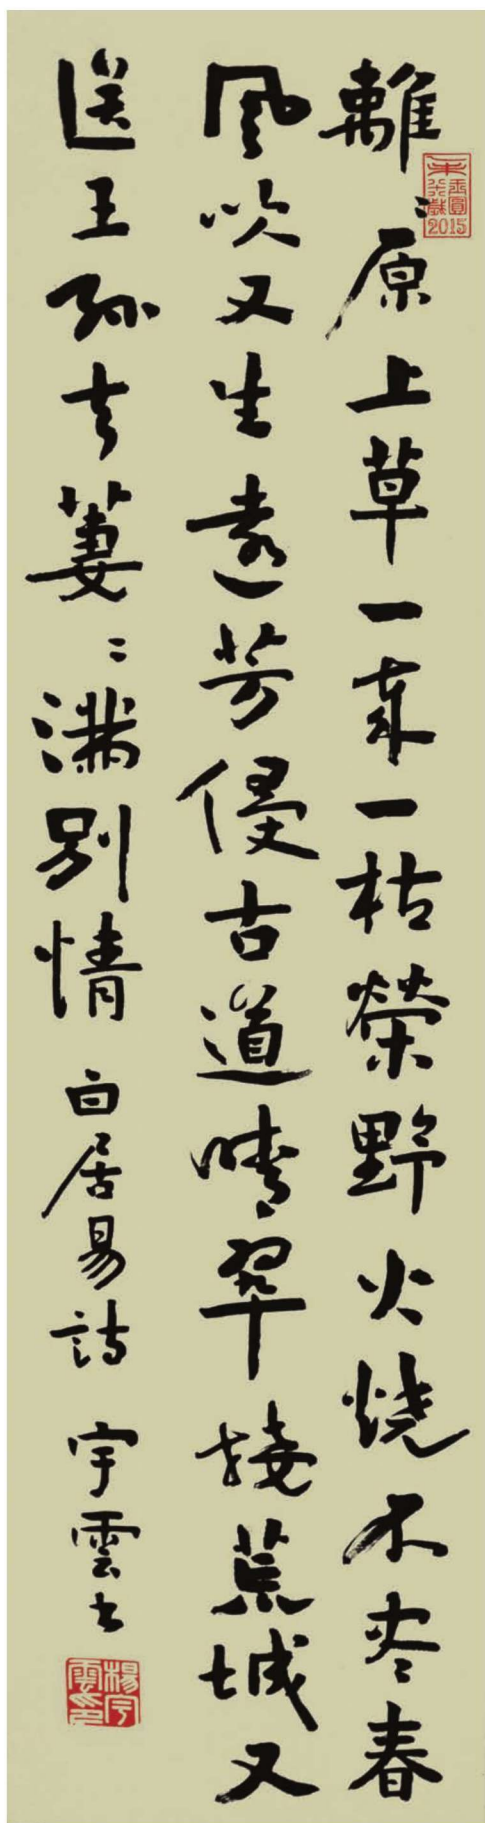 離〻原上草一歲一枯榮野火燒不盡春
風吹又生遠芳侵古道晴翠接荒城又
送王孫去萋〻滿別情 白居易詩 宇雲书
楊宇雲印
2015